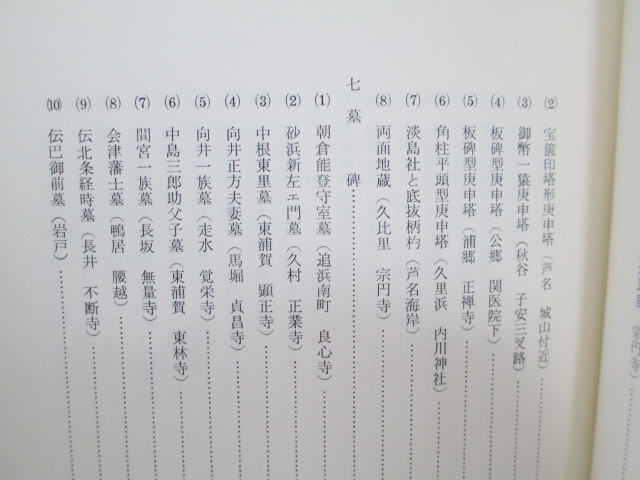 (2) 宝篋印塔形庚申塔(芦名 城山付近)
(3) 御幣一猿庚申塔(秋谷 子安三叉路)
(4) 板碑型庚申塔(公郷 関医院下)
(5) 板碑型庚申塔(浦郷 正禅寺)
(6) 角柱平頭型庚申塔(久里浜 内川神社)
(7) 淡島社と底抜柄杓(芦名海岸)
(8) 両面地蔵(久比里 宗円寺)
七 墓 碑
(1) 朝倉能登守室墓(追浜南町 良心寺)
(2) 砂浜新左ェ門墓(久村 正業寺)
(3) 中根東里墓(東浦賀 顕正寺)
(4) 向井正方夫妻墓(馬堀 貞昌寺)
(5) 向井一族墓(走水 覚栄寺)
(6) 中島三郎助父子墓(東浦賀 東林寺)
(7) 間宮一族墓(長坂 無量寺)
(8) 会津藩士墓(鴨居 腰越)
(9) 伝北条経時墓(長井 不断寺)
(10) 伝巴御前墓(岩戸)